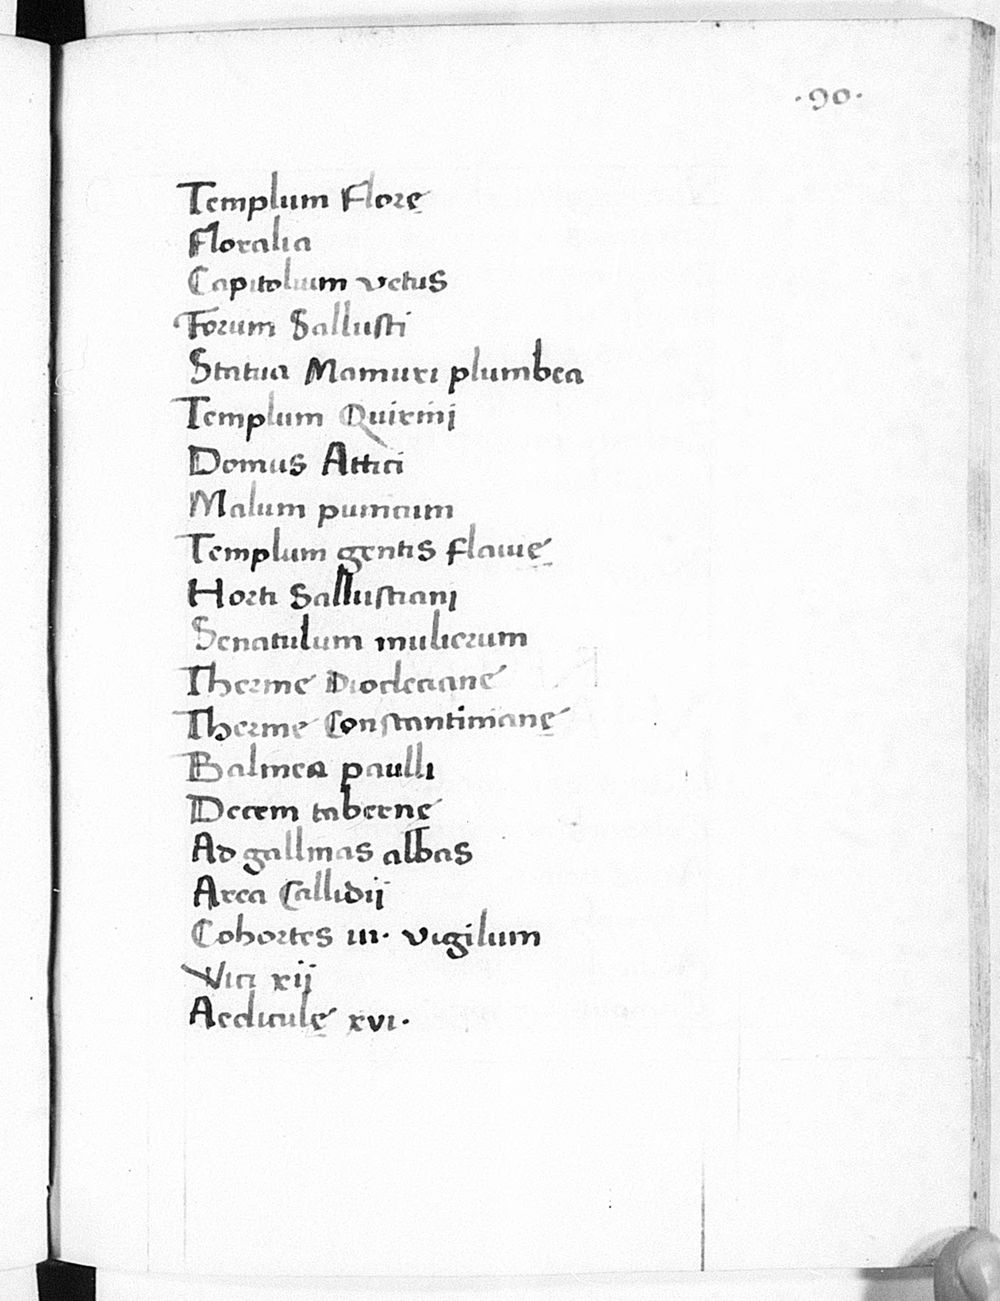 ·90·
Templum Florę
Floralia
Capitolium vetus
Forum Sallusti
Statua Mamuri plumbea
Templum Quirini
Domus Attici
Malum punicum
Templum gentis flauię
Horti Sallustiani
Senatulum mulierum
Thermę Diocletianę
Thermę Constantinianę
Balinea paulli
Decem tabernę
Ad gallinas albas
Area Callidij
Cohortes III· vigilum
Vici xij
Aediculę xvi·